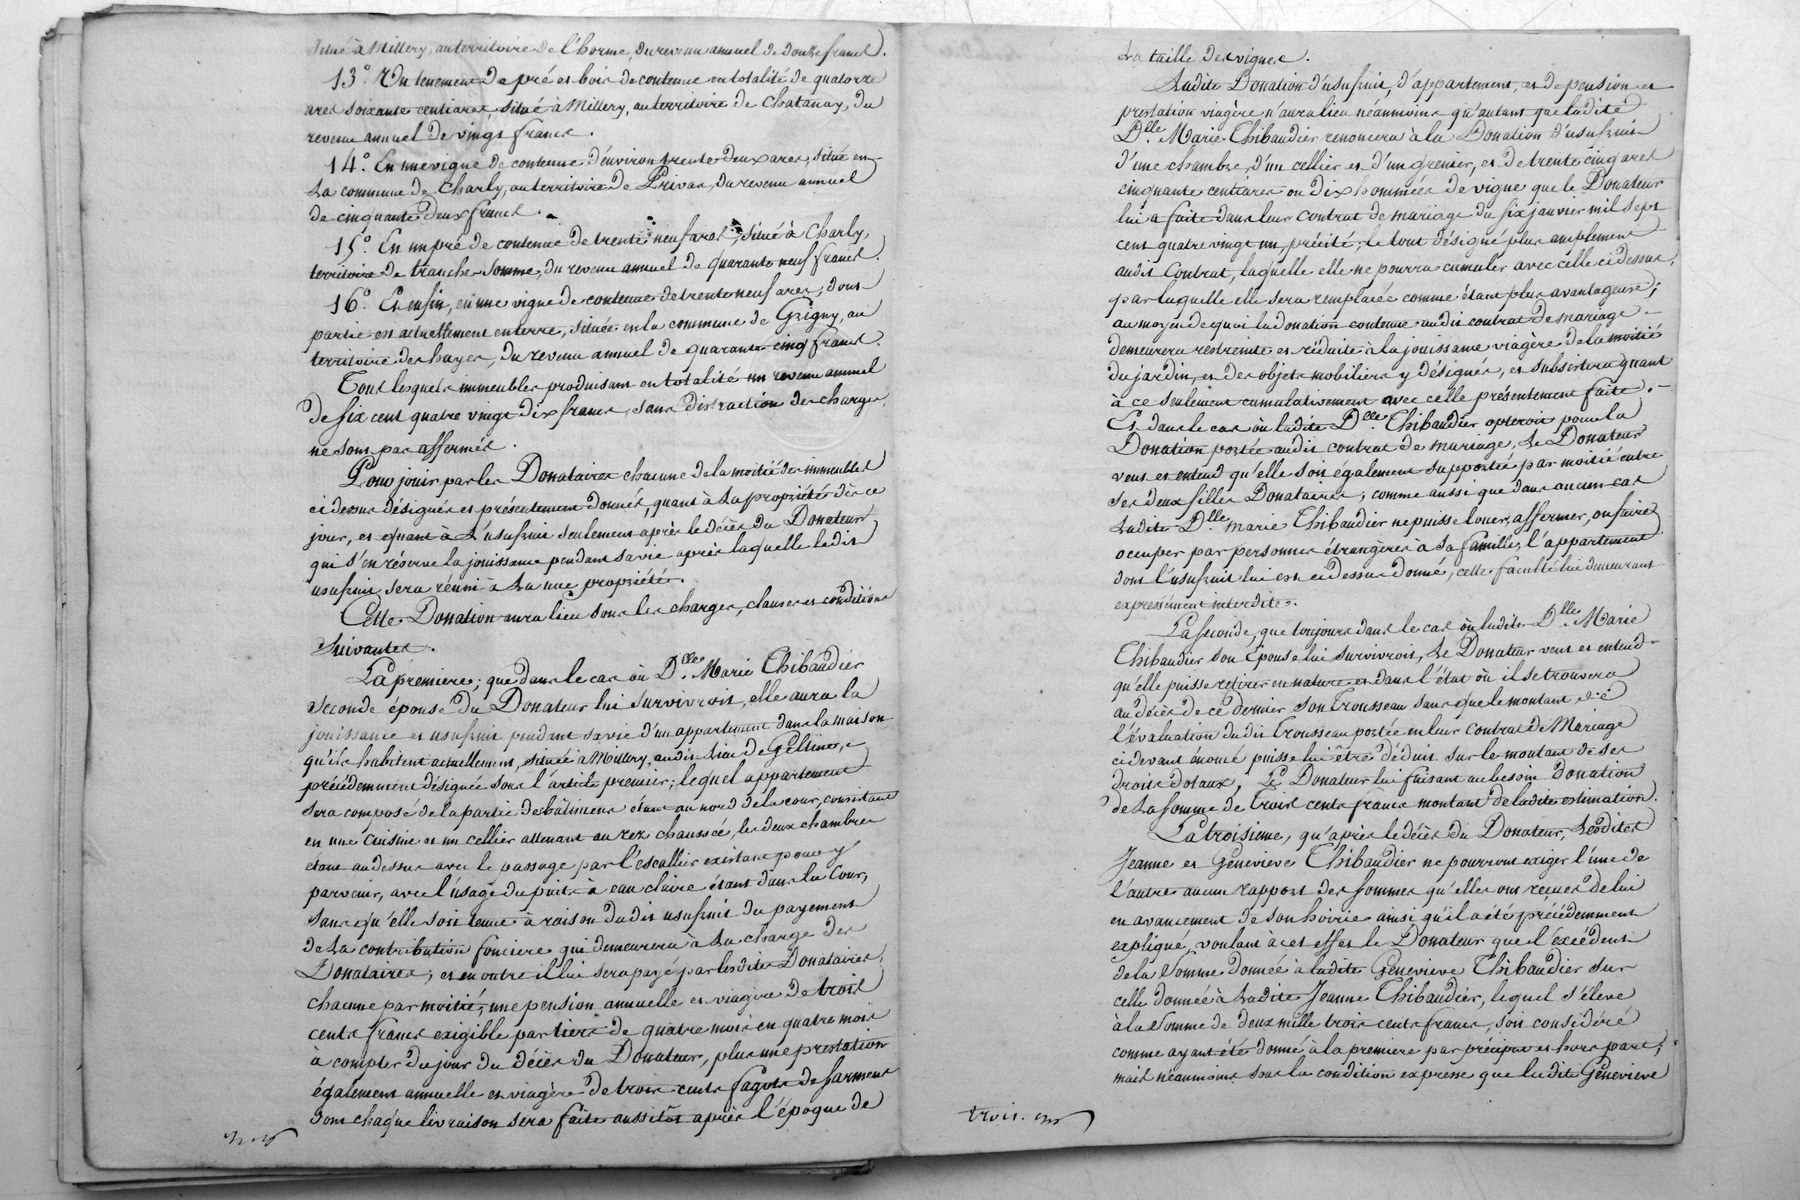 situé à Millery, au territoire de l'horme, du revenu annuel de douze francs.
13.° Un tenement de pré et bois de contenue en totalité de quatorze
ares soixante centiares, situé à Millery, au territoire de Chatanay, du
revenu annuel de vingt francs.
14.° En une vigne de contenue d'environ trente deux ares, située en
la commune de Charly, au territoire de Privas, du revenu annuel
de cinquante deux francs.
15.° En un pré de contenue de trente neuf ares, situé à Charly,
territoire de tranche-Somme, du revenu annuel de quarante neuf francs.
16.° Et enfin, en une vigne de contenue de trente neuf ares, dont
partie est actuellement en terre, située en la commune de Grigny, au
territoire des hayes, du revenu annuel de quarante cinq francs.
Tous lesquels immeubles produisant en totalité un revenu annuel
de six cent quatre vingt dix francs, sans distraction des charges,
ne sont pas affermés.
Pour jouir par les Donataires chacune de la moitié des immeubles
ci dessus désignés et présentement donnés, quant à la propriété dès ce
jour, et quant à l'usufruit seulement après le décès du Donateur
qui s'en réserve la jouissance pendant sa vie après laquelle ledit
usufruit sera réuni à la nue propriété.
Cette Donation aura lieu sous les charges, clauses et conditions
suivantes.
La premiere; que dans le cas où D.lle Marie Thibaudier
seconde épouse du Donateur lui survivroit, elle aura la
jouissance et usufruit pendant sa vie d'un appartement dans la maison
qu'ils habitent actuellement, située à Millery, audit lieu de
précédemment désignée sous l'article premier; lequel appartement
sera composé de la partie des bâtimens étant au nord de la cour, consistant
en une cuisine et un cellier attenant au rez chaussée, les deux chambres
étant au dessus avec le passage par l'escallier existant pour y
parvenir, avec l'usage du puits à eau claire étant dans la Cour,
sans qu'elle soit tenue à raison dudit usufruit du payement
de la contribution fonciere qui demeurera à la charge des
Donataires; et en outre il lui sera payé par lesdites Donataires,
chacune par moitié, une pension annuelle et viagère de trois
cents francs exigible par tiers de quatre mois en quatre mois
à compter du jour du décès du Donateur, plus une prestation
également annuelle et viagère de trois cents fagots de sarment
dont chaque livraison sera faite aussitôt après l'époque de
la taille des vignes.
Ladite Donation d'usufruit, d'appartement, et de pension et
prestation viagère n'aura lieu néanmoins qu'autant que ladite
D.lle Marie Thibaudier renoncera à la Donation d'usufruit
d'une chambre, d'un cellier et d'un grenier, et de trente cinq ares
cinquante centiares ou dix hommées de vigne que le Donateur
lui a faite dans leur contrat de mariage du six janvier mil sept
cent quatre vingt un, précité; le tout désigné plus amplement
audit Contrat, laquelle elle ne pourra cumuler avec celle ci dessus,
par laquelle elle sera remplacée comme étant plus avantageuse;
au moyen de quoi la donation contenue audit contrat de mariage
demeurera restreinte et réduite à la jouissance viagère de la moitié
du jardin, et des objets mobiliers y désignés, et subsistera quant
à ce seulement cumulativement avec celle présentement faite.
Et dans le cas où ladite D.lle Thibaudier opteroit pour la
Donation portée audit contrat de mariage, le Donateur
veut et entend qu'elle soit également supportée par moitié entre
ses deux filles Donataires; comme aussi que dans aucun cas
ladite D.lle Marie Thibaudier ne puisse louer, affermer, ou faire
occuper par personnes étrangères à sa famille, l'appartement
dont l'usufruit lui est ci dessus donné, cette faculté lui demeurant
expressément interdite.
La seconde, que toujours dans le cas où ladite D.lle Marie
Thibaudier son Épouse lui survivroit, le Donateur veut et entend
qu'elle puisse retirer en nature et dans l'état où il se trouvera
au décès de ce dernier son Trousseau sans que le montant de
l'évaluation dudit Trousseau portée en leur Contrat de Mariage
ci devant énoncé puisse lui être déduit sur le montant de ses
droits dotaux, Le Donateur lui faisant au besoin donation
de la somme de trois cents francs montant de ladite estimation.
La troisieme, qu'après le décès du Donateur, lesdites
Jeanne et Genevieve Thibaudier ne pourront exiger l'une de
l'autre aucun rapport des sommes qu'elles ont reçues de lui
en avancement de son hoirie ainsi qu'il a été précédemment
expliqué, voulant à cet effet le Donateur que l'excédent
de la Somme donnée à ladite Genevieve Thibaudier sur
celle donnée à ladite Jeanne Thibaudier, lequel s'éleve
à la Somme de deux mille trois cents francs, soit considéré
comme ayant été donné à la premiere par préciput et hors part;
mais néanmoins sous la condition expresse que ladite Genevieve
trois.